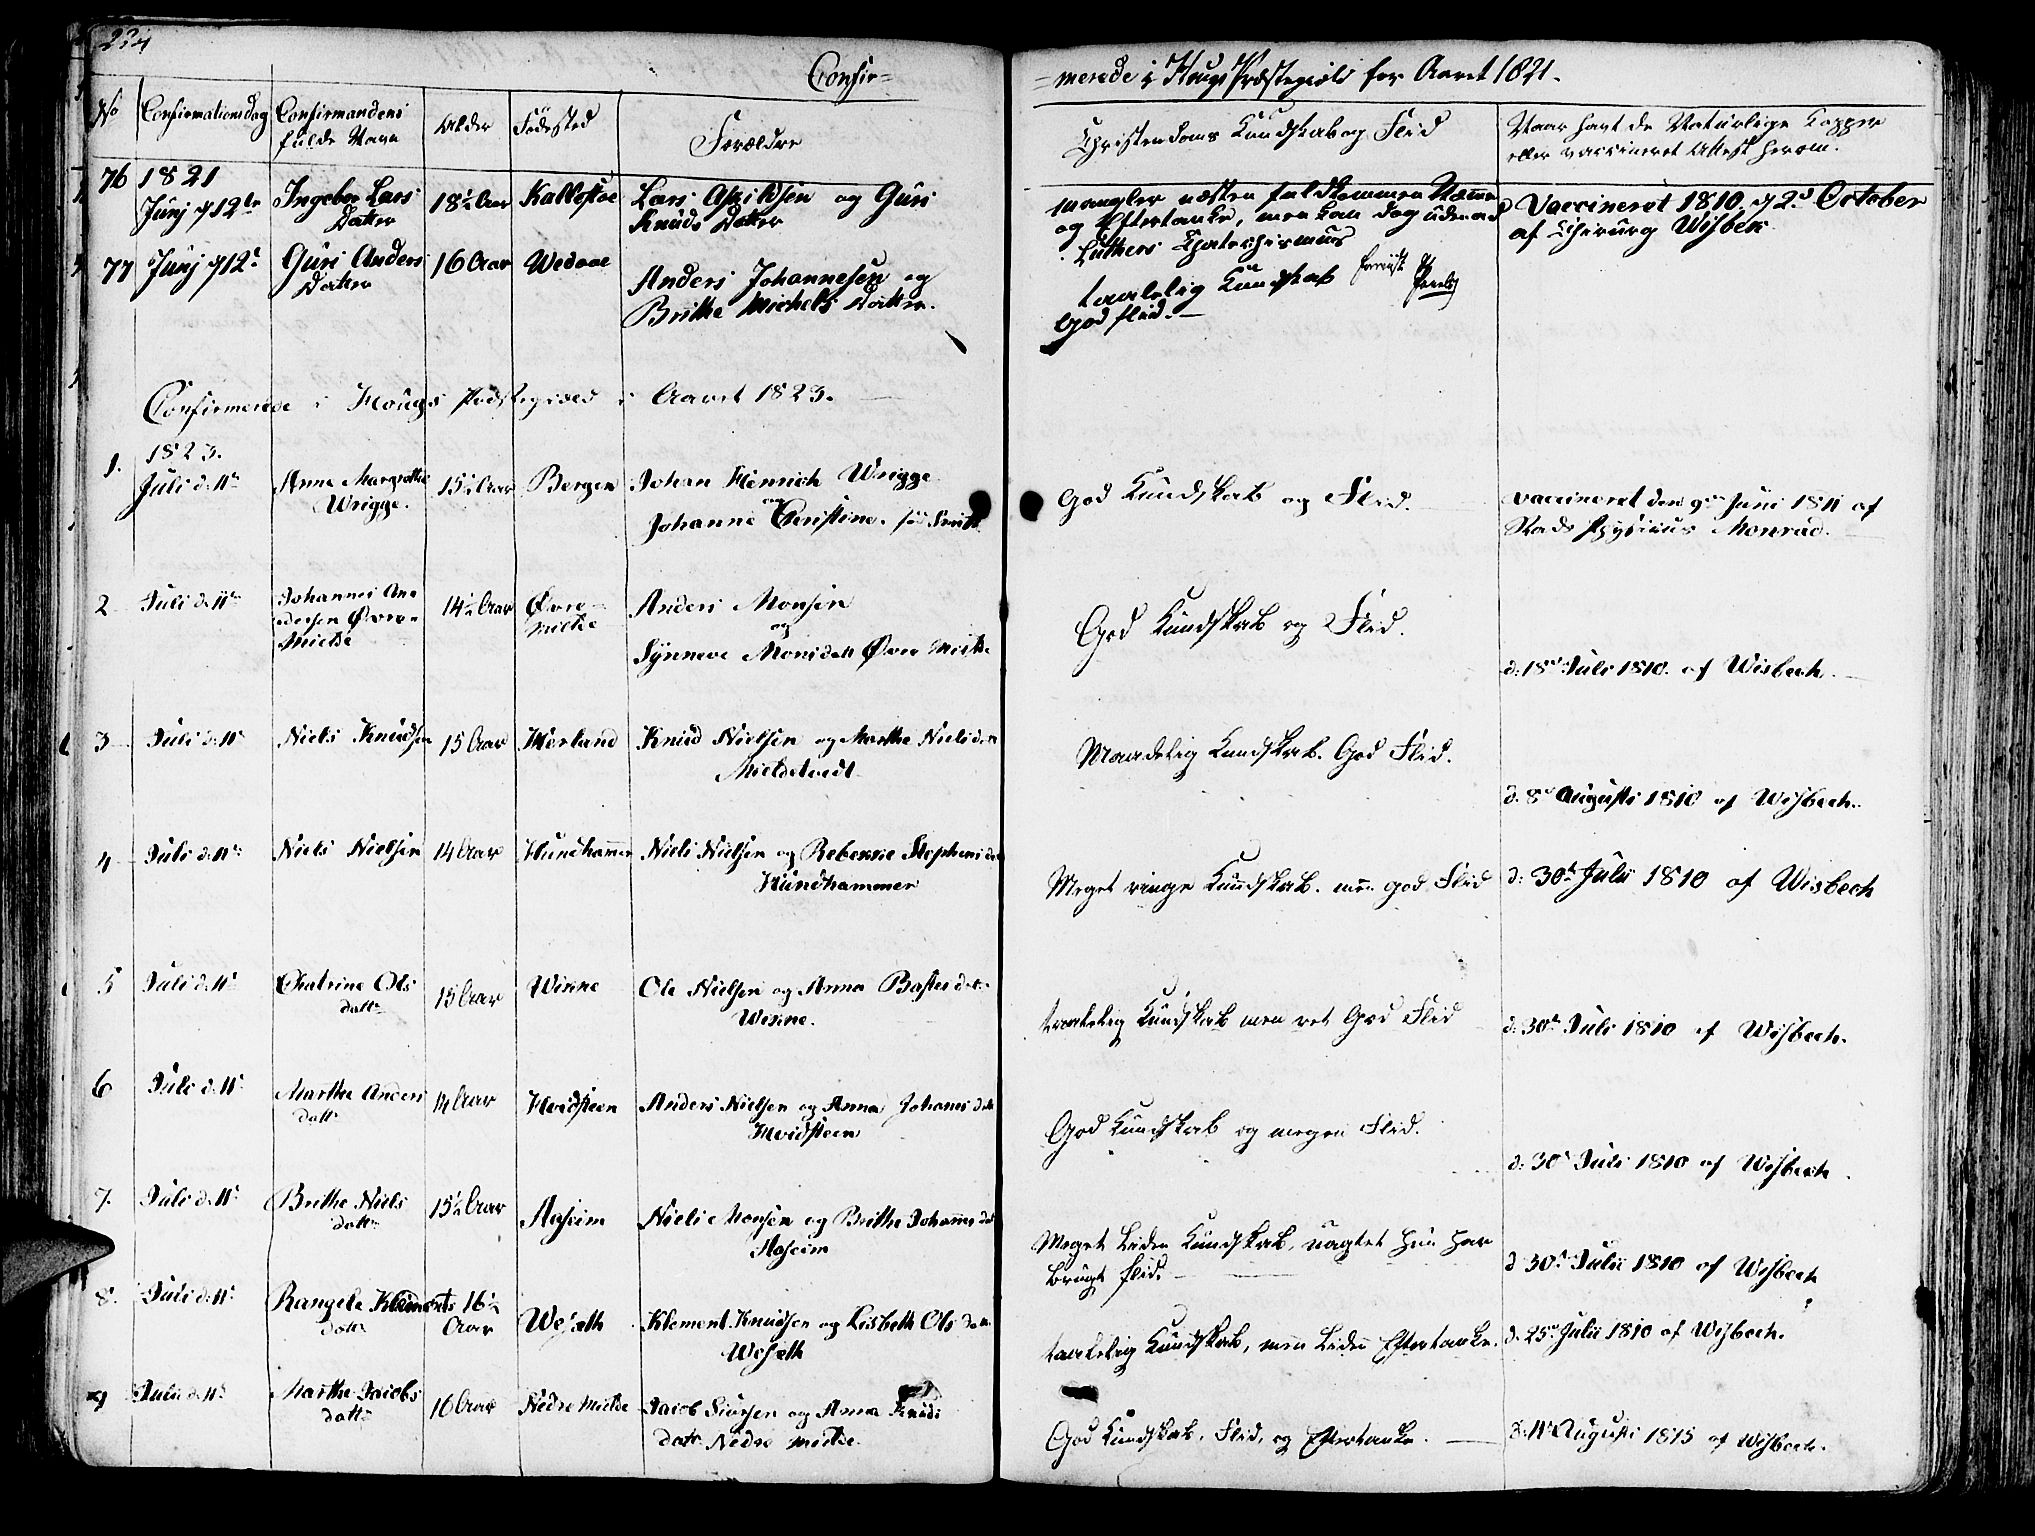 234
Confir=
=merede i Hougs Præstegield for Aaret 1821.
No Confirmationsdag Confirmandens fulde Navn Alder Fødested Forældre Christendoms Kundskab og Flid Naar havt de Naturlige Kopper
eller vaccineret Attest herom.
76 1821
Junj d 12te Ingebor Lars Datter 18½ Aar Kallestæ Lars Askildsen og Guri
Knuds Datter
mangler næsten fuldkommen
og Eftertanke, men kan dog udenad
Luthers Chatechismus
Vaccineret 1810 d 2d October
af Chirurg Wisbek
77 Junj d 12t Guri Anders Datter 16 Aar Wedaae Anders Johannesen og
Brithe Michels Datter.
taalelig Kundskab
god flid.
Confirmerede i Hougs Præstegield i Aaret 1823.
1. 1823.
Juli d. 11te Anna Margrethe Wrigge. 15½ Aar Bergen Johan Henrich Wrigge
og
Johanne Christine. fød Smith
God Kundskab og Flid.
vaccineret den 9de Juni 1811 af
Stads Physicus Monrad.
2 Juli d. 11te Johannes An=
dersen Øvre=
Mielde
14½ Aar Øvre=
Mielde
Anders Monsen
og
Synneve Monsdatt Øvre Mielde
God Kundskab og Flid.
d: 18de Juli 1810. af Wisbech.
3 Juli d. 11t Niels Knudsen 15 Aar Herland Knud Nielsen og Marthe Niels dtr
Mieldetvedt
Maadelig Kundskab. God Flid.
d. 8de Augusti 1810 af Wisbech.
4 Juli d. 11te Niels Nielsen 14 Aar Hundhammer Niels Nielsen og Rebekke Stephens dat
Hundhammer
Meget ringe Kundskab. men god Flid
d: 30te Julii 1810 af Wisbech
5 Juli d. 11t Chatrine Ols
datt
15 Aar Wirine Ole Nielsen og Anna Bastes dat
Wirine.
taalelig Kundskab men ret God Flid
d: 30te Juli 1810 af Wisbech.
6 Juli d. 11t Marthe Anders
datt
14 Aar Hvidsteen Anders Nielsen og Anna Johans dat
Hvidsteen
God Kundskab og megen Flid.
d: 30t Juli 1810 af Wisbech.
7. Juli d. 11t Brithe Niels
datt
15½ Aar Aaseim Niels Monsen og Brithe Johannes dat
Aaseim
Meget Liden Kundskab, uagtet hun har
brugt flid.
d 30t Julii 1810 af Wisbech
8. Juli d. 11t Rangele Klements
datt
16½
Aar
Wesæth Klement Knudsen og Lisbeth Ols dat
Wesæth
taalelig Kundskab, men Liden Eftertanke.
d. 25de Julii 1810 af Wisbech.
9 Julii d. 11t Marthe Jacobs
datt
16 Aar Nedre Mielde Jacob Siursen og Anna Knuds
datt Nedre Mielde.
God Kundskab, Flid, og Eftertanke.
d. 11t Augusti 1815 af Wisbech.